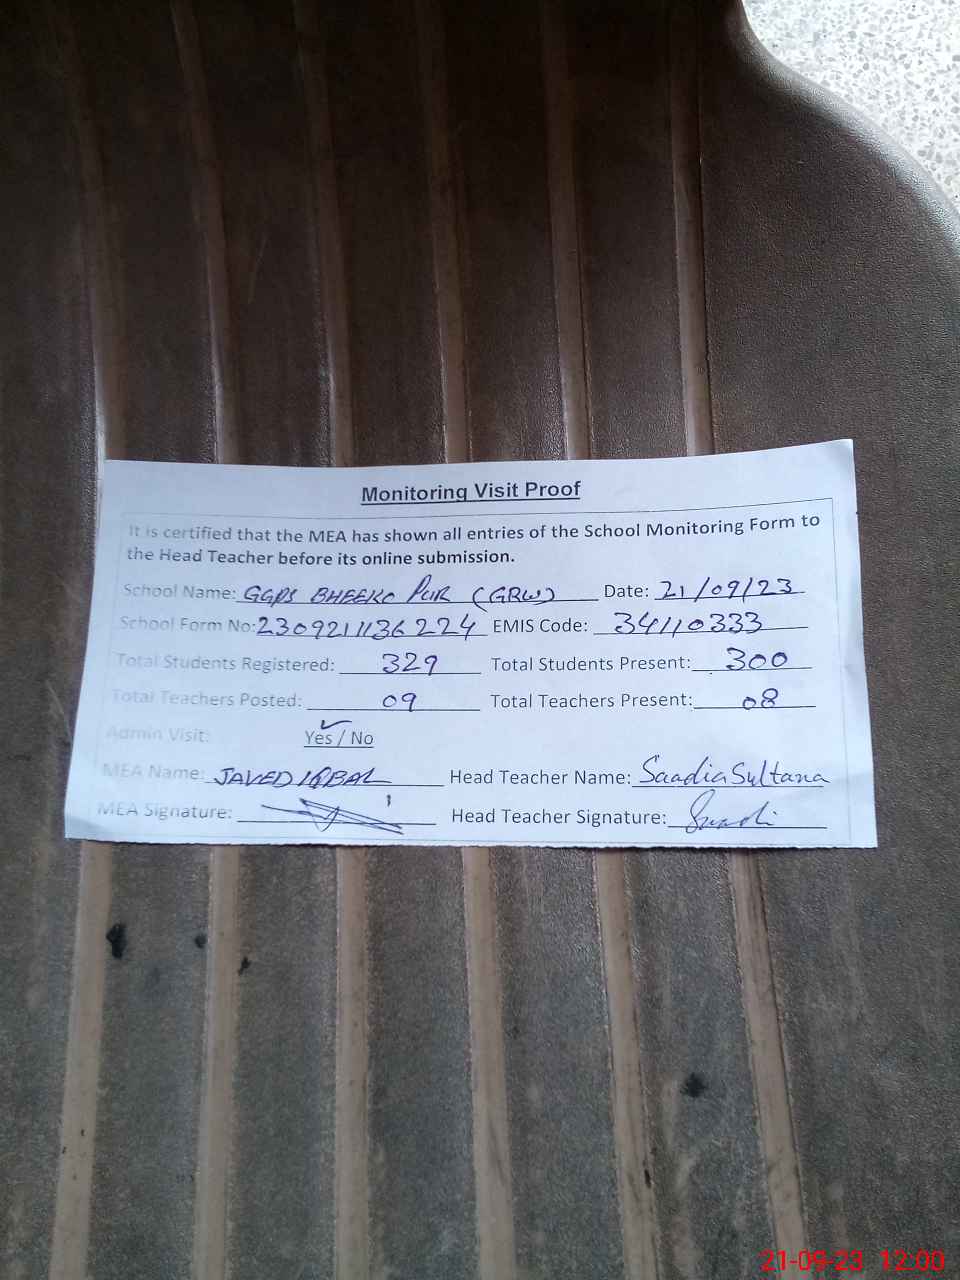 Monitoring Visit Proof
It is certified that the MEA has shown all entries of the School Monitoring Form to
the Head Teacher before its online submission.
School Name: GGPS BHEEKO PUR (GRW) Date: 21/09/23
School Form No: 2309211136224 EMIS Code: 34110333
Total Students Registered: 329 Total Students Present: 300
Total Teachers Posted: 09 Total Teachers Present: 08
Admin Visit: Yes / No
MEA Name: JAVED IQBAL Head Teacher Name: Saadia Sultana
MEA Signature: Head Teacher Signature:
21-09-23 12:00